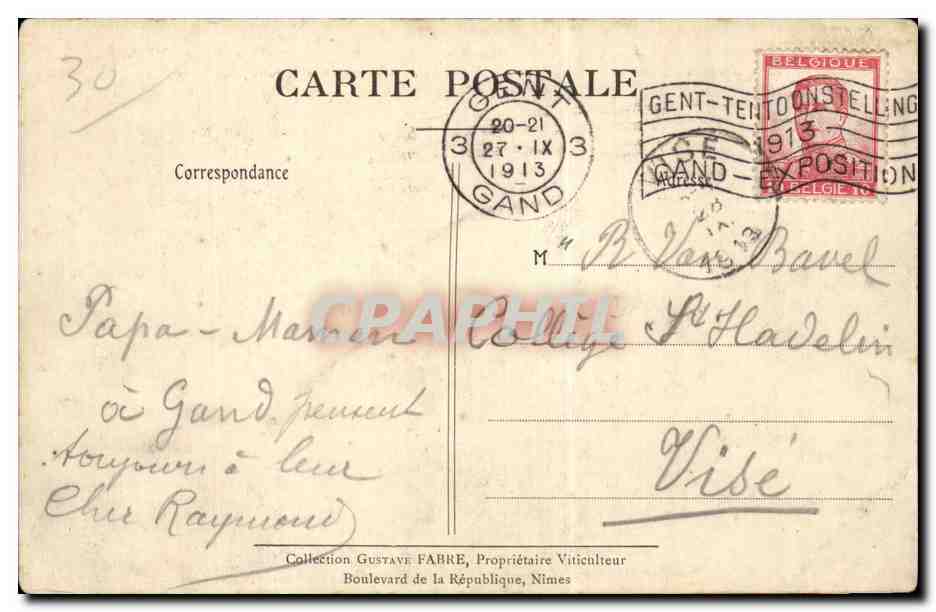 30
CARTE POSTALE
GENT
3 20-21 3
27 · IX
1913
GAND
BELGIQUE
GENT-TENTOONSTELLING
1913
GAND-EXPOSITION
BELGIE 10
Correspondance
Adresse
28
IX
1913
M" R Van Bavel
Collège St Hadelin
Visé
Papa - Maman
à Gand pensent
toujours à leur
Cher Raymond
CPAPHIL
Collection GUSTAVE FABRE, Propriétaire Viticulteur
Boulevard de la République, Nimes